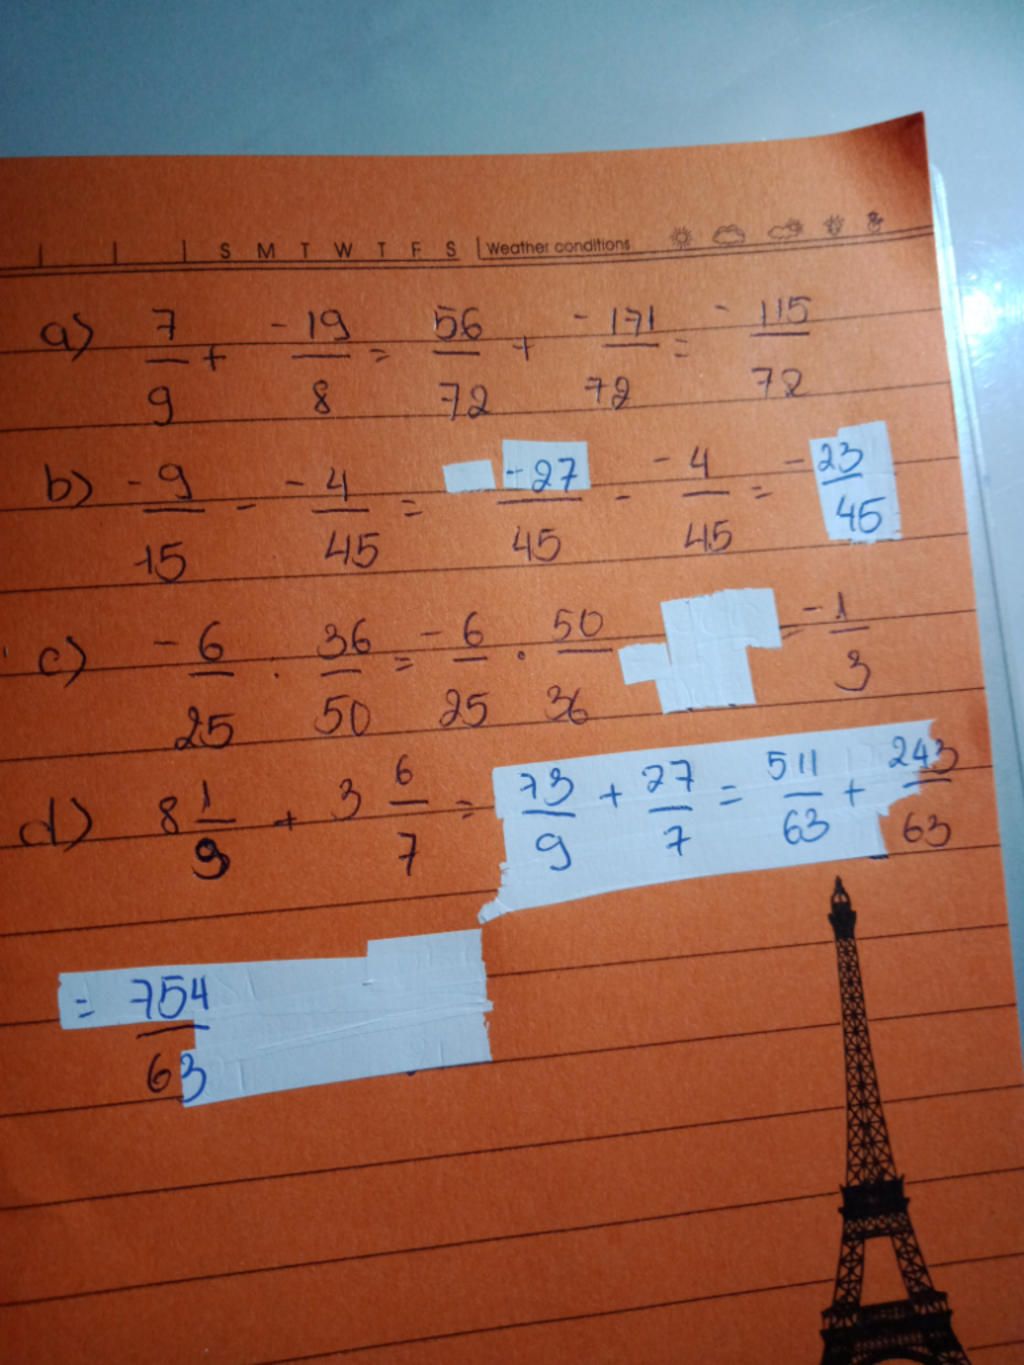 S M T W T F S Weather conditions
a) 7/9 + -19/8 = 56/72 + -171/72 = -115/72
b) -9/15 - -4/45 = -27/45 - -4/45 = -23/45
c) -6/25 . 36/50 = -6/25 . 50/36 = -1/3
d) 8 1/9 + 3 6/7 = 73/9 + 27/7 = 511/63 + 243/63
= 754/63